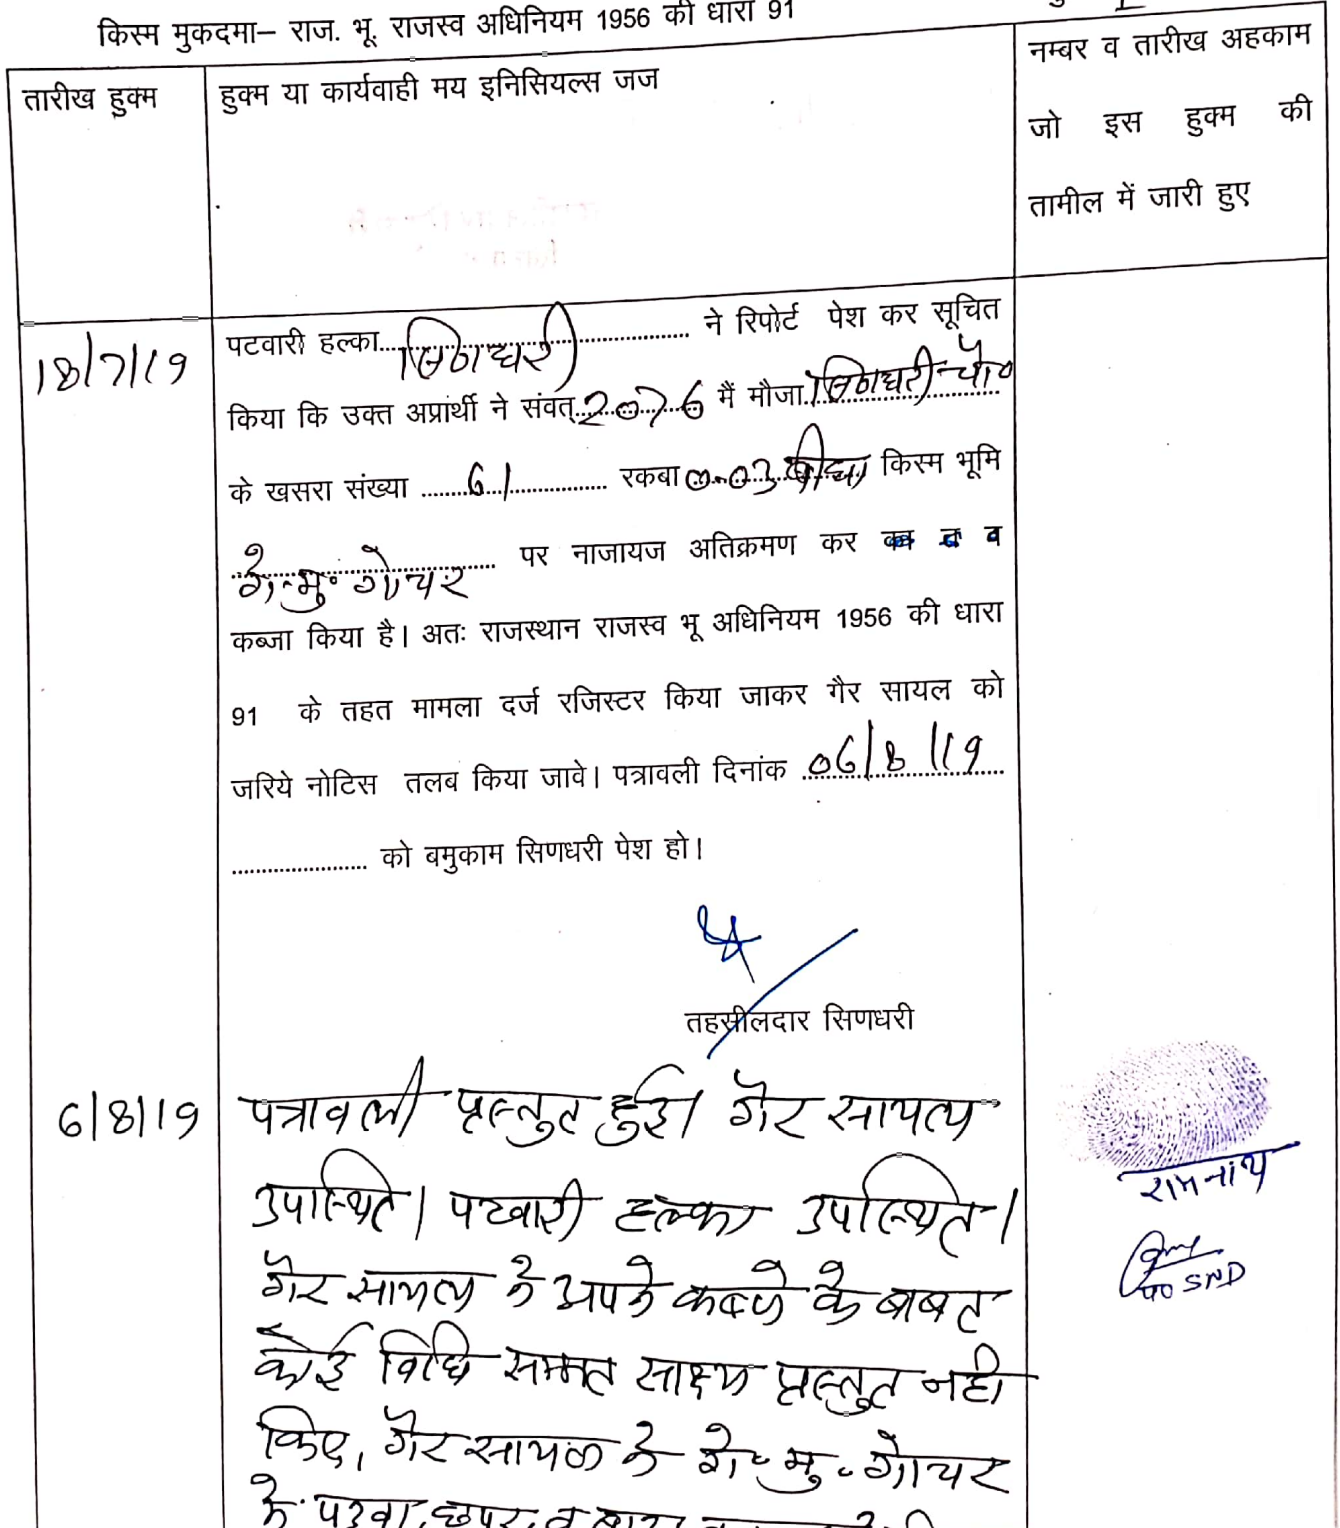 किस्म मुकदमा– राज. भू. राजस्व अधिनियम 1956 की धारा 91
तारीख हुक्म
हुक्म या कार्यवाही मय इनिसियल्स जज
नम्बर व तारीख अहकाम
जो इस हुक्म की
तामील में जारी हुए
18/7/19
पटवारी हल्का...सिणधरी... ने रिपोर्ट पेश कर सूचित
किया कि उक्त अप्रार्थी ने संवत् 2076 मैं मौजा सिणधरी चौ०
के खसरा संख्या ....61.... रकबा 0.03 बीघा किस्म भूमि
गै.मु. गोचर पर नाजायज अतिक्रमण कर व
कब्जा किया है। अतः राजस्थान राजस्व भू अधिनियम 1956 की धारा
91 के तहत मामला दर्ज रजिस्टर किया जाकर गैर सायल को
जरिये नोटिस तलब किया जावे। पत्रावली दिनांक 06/8/19
................ को बमुकाम सिणधरी पेश हो।
तहसीलदार सिणधरी
6/8/19
पत्रावली प्रस्तुत हुई। गैर सायल
उपस्थित। पटवारी हल्का उपस्थित।
गैर सायल ने अपने कब्जे के बाबत
कोई विधि सम्मत साक्ष्य प्रस्तुत नही
किए, गैर सायल ने गै. मु. गोचर
रामनाथ
SND